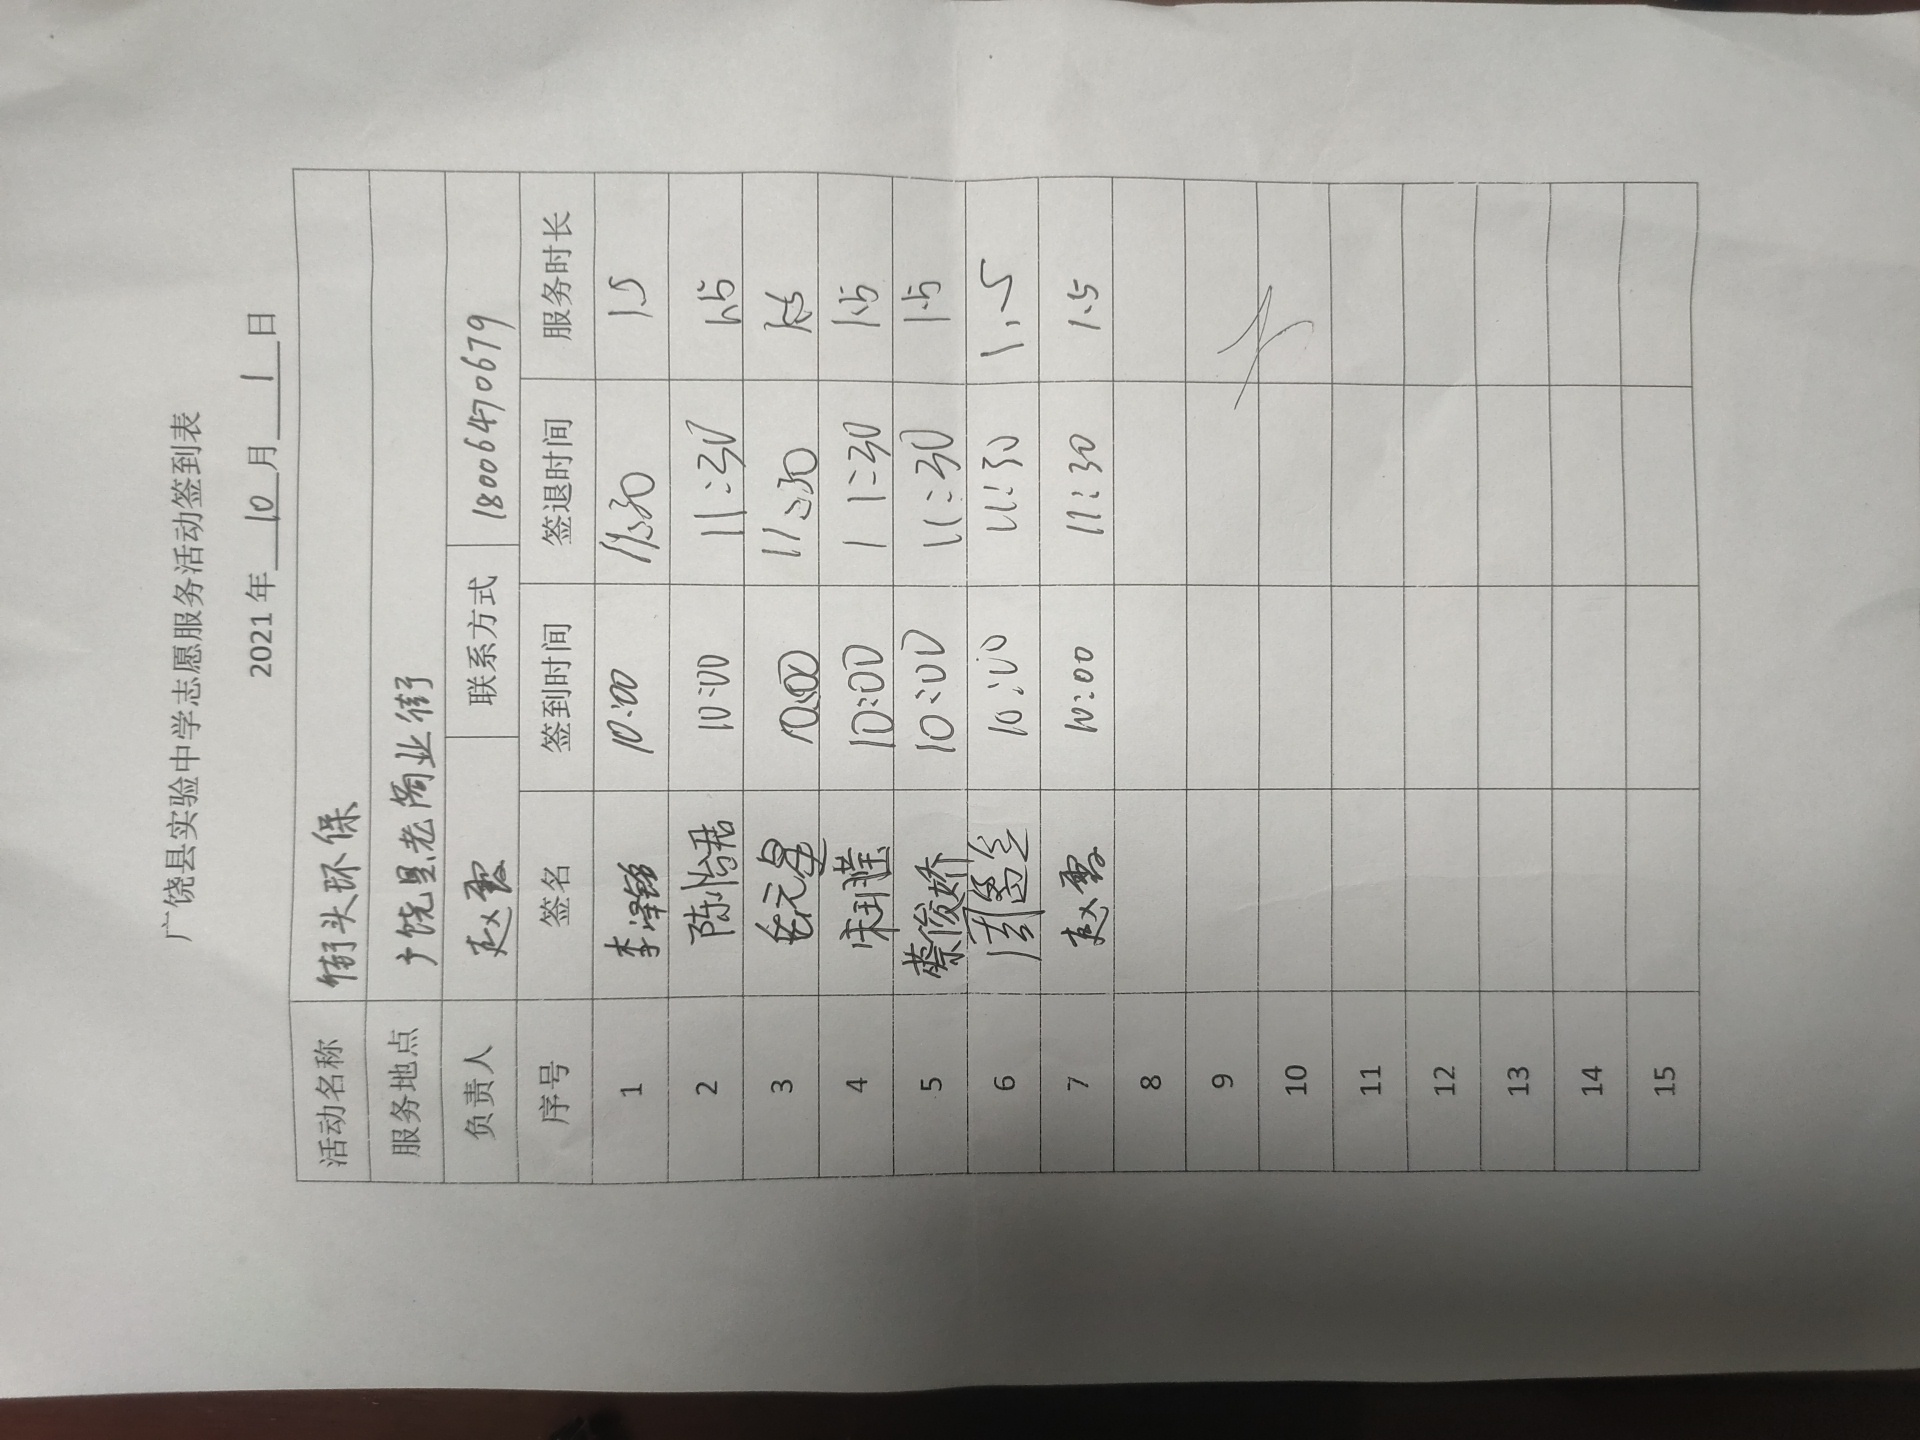 广饶县实验中学志愿服务活动签到表
2021年 10 月 1 日
活动名称 街头环保
服务地点 广饶县老商业街
负责人 赵霞 联系方式 18006470679
序号 签名 签到时间 签退时间 服务时长
1 李泽铭 10:00 11:30 1.5
2 陈怡君 10:00 11:30 1.5
3 10:00 11:30 1.5
4 宋玥莹 10:00 11:30 1.5
5 蔡俊娇 10:00 11:30 1.5
6 10:00 11:30 1.5
7 赵霞 10:00 11:30 1.5
8
9
10
11
12
13
14
15